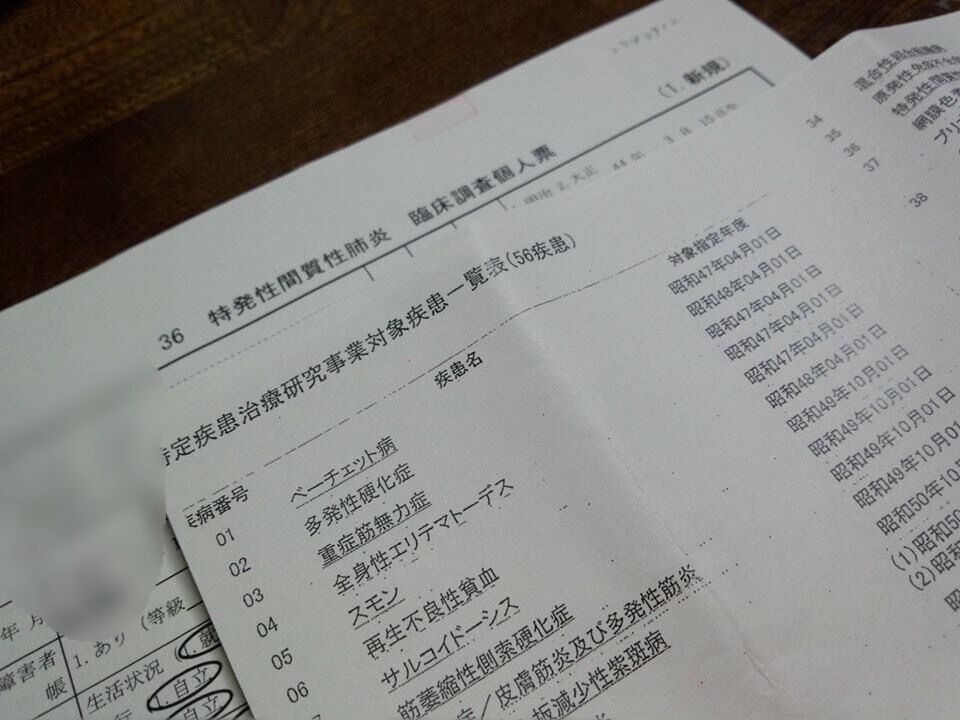 (1.新規)
36 特発性間質性肺炎 臨床調査個人票
明治 2.大正 44年 3月 15日生
定疾患治療研究事業対象疾患一覧表(56疾患)
病番号 疾患名 対象指定年度
01 ベーチェット病 昭和47年04月01日
02 多発性硬化症 昭和48年04月01日
03 重症筋無力症 昭和47年04月01日
04 全身性エリテマトーデス 昭和47年04月01日
05 スモン 昭和47年04月01日
06 再生不良性貧血 昭和48年04月01日
サルコイドーシス 昭和49年10月01日
筋萎縮性側索硬化症 昭和49年10月01日
症/皮膚筋炎及び多発性筋炎 昭和49年10月01日
板減少性紫斑病 昭和49年10月01
昭和50年10月
(1)昭和50
(2)昭和
34 混合性結合組織病
35 原発性免疫不全
36 特発性間質性
37 網膜色素
38 プリ
年 月
障害者
帳
1.あり (等級
生活状況 就
行 自立
自立